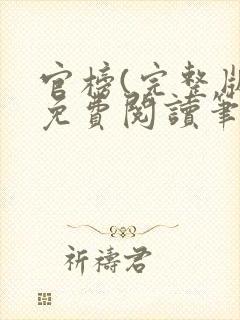 官榜(完整版
免費閱讀筆
祈禱君